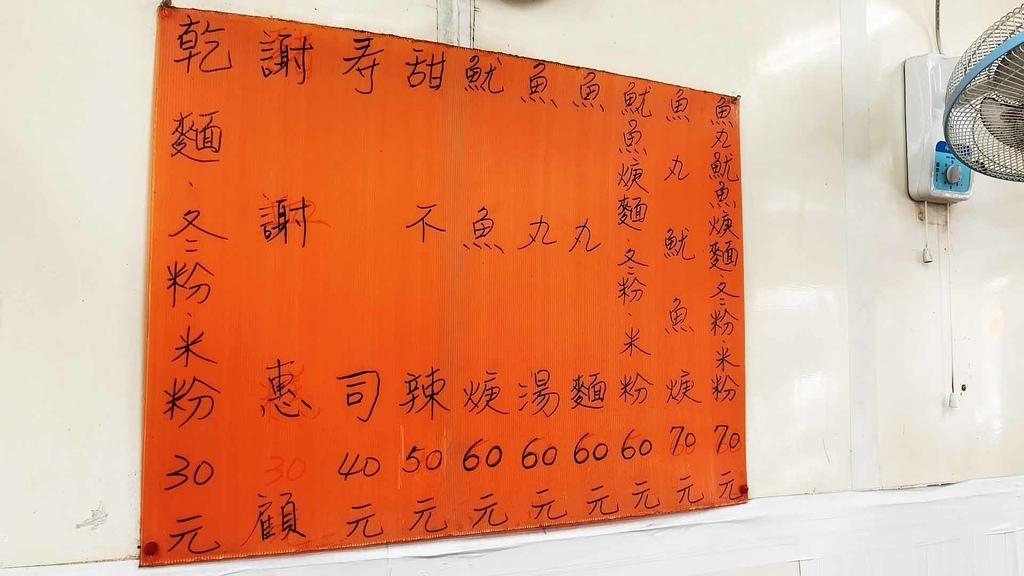 魚丸魷魚焿麵.冬粉.米粉70元
魚丸魷魚焿70元
魷魚焿麵.冬粉.米粉60元
魚丸麵60元
魚丸湯60元
魷魚焿60元
甜不辣50元
寿司40元
謝謝惠顧
乾麵、冬粉.米粉30元